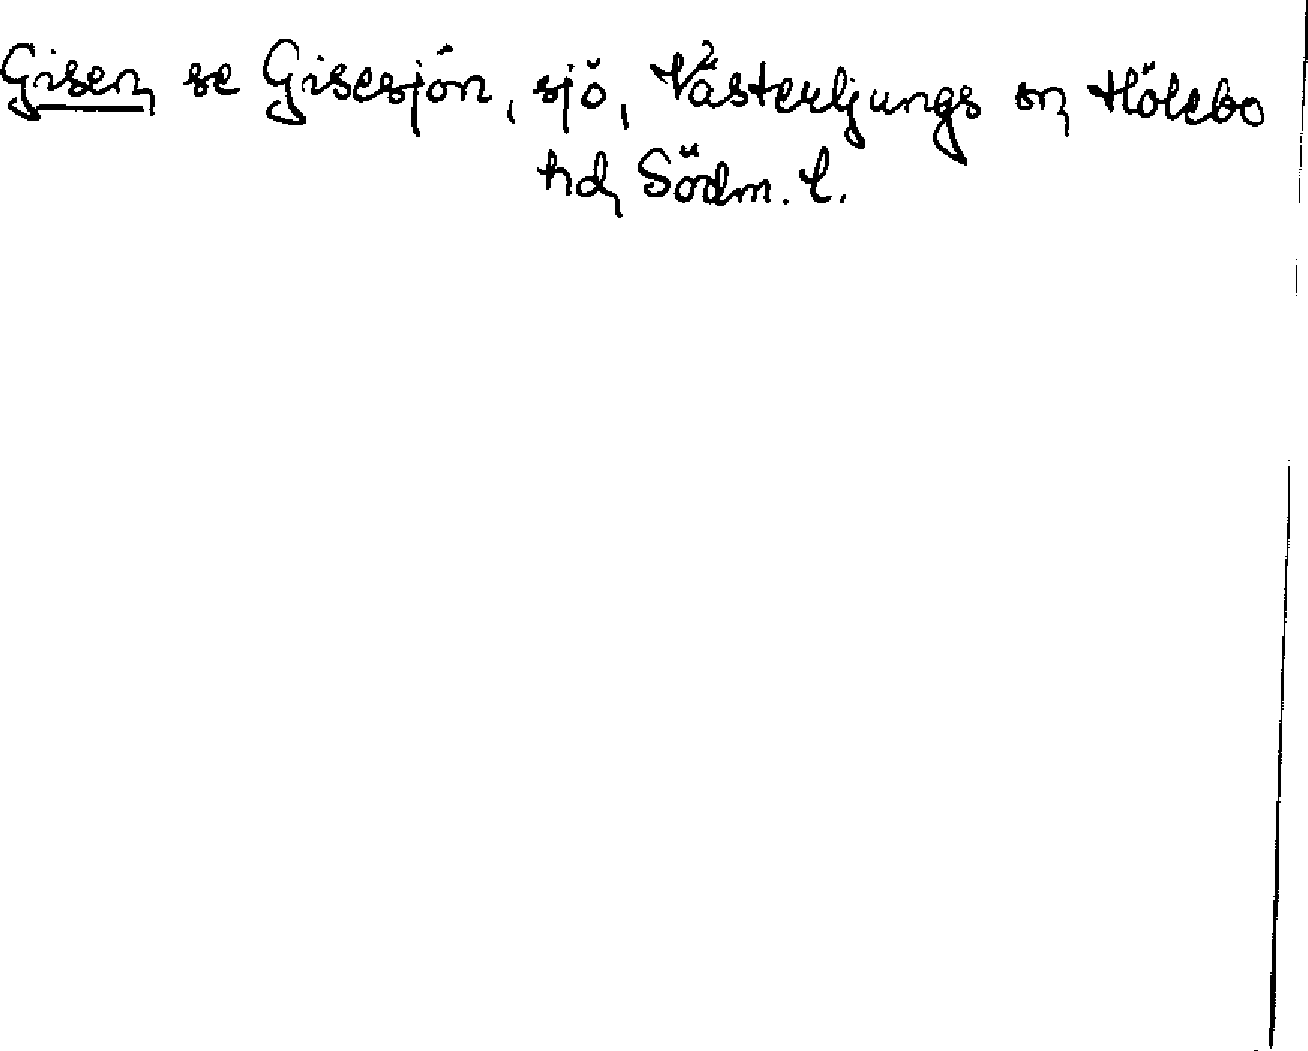 Gisen, se Gisesjön, sjö, Västerljungs sn, Hölebo
hd, Södm. l.